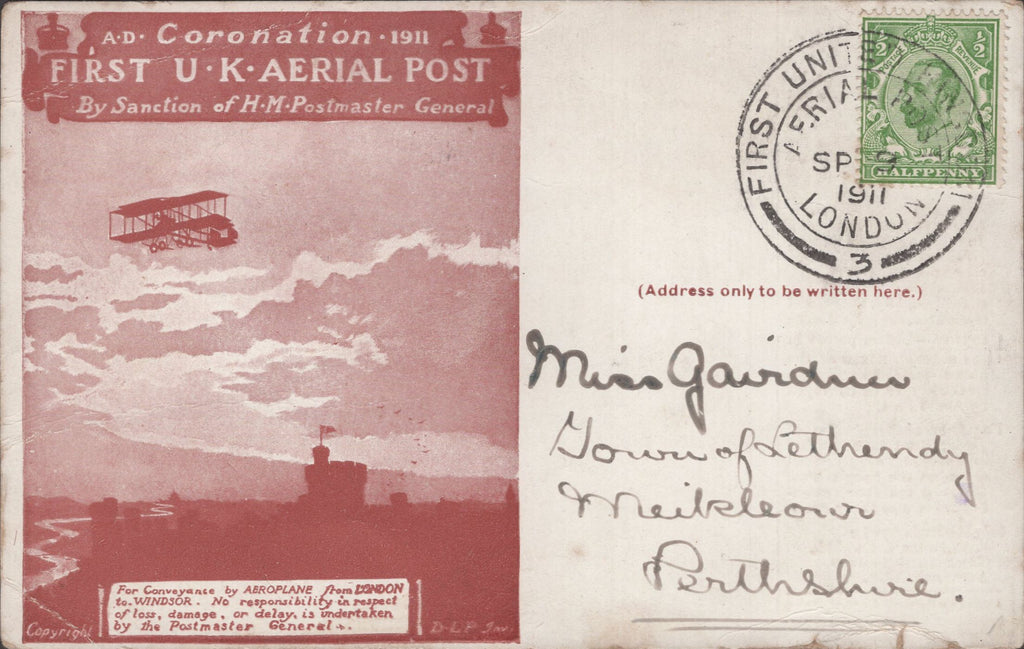 A·D· Coronation · 1911
FIRST U·K·AERIAL POST
By Sanction of H·M·Postmaster General
For Conveyance by AEROPLANE from LONDON
to WINDSOR. No responsibility in respect
of loss, damage, or delay, is undertaken
by the Postmaster General.
Copyright
D·L·P· Inv
½
½
POSTAGE
REVENUE
HALFPENNY
FIRST UNITED
AERIAL POST
SP
1911
LONDON
3
(Address only to be written here.)
Miss Gairdner
Town of Lethendy
Meikleour
Perthshire.